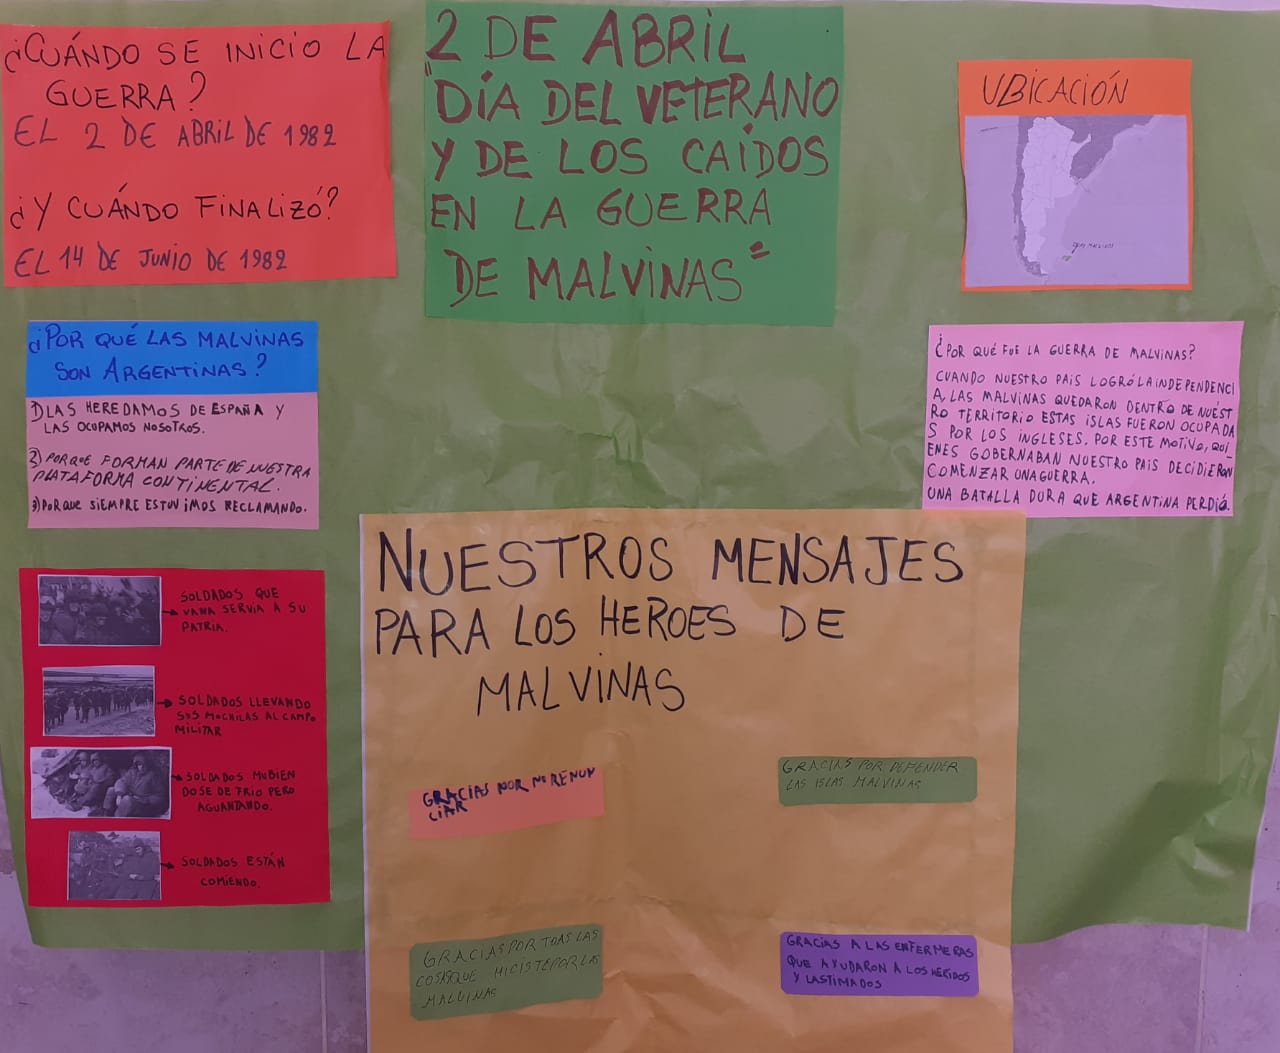 ¿CUÁNDO SE INICIO LA
GUERRA?
EL 2 DE ABRIL DE 1982
¿Y CUÁNDO FINALIZÓ?
EL 14 DE JUNIO DE 1982
2 DE ABRIL
"DÍA DEL VETERANO
Y DE LOS CAIDOS
EN LA GUERRA
DE MALVINAS"
UBICACIÓN
ISLAS MALVINAS
¿POR QUÉ LAS MALVINAS
SON ARGENTINAS?
1) LAS HEREDAMOS DE ESPAÑA Y
LAS OCUPAMOS NOSOTROS.
2) PORQUE FORMAN PARTE DE NUESTRA
PLATAFORMA CONTINENTAL.
3) PORQUE SIEMPRE ESTUVIMOS RECLAMANDO.
¿POR QUÉ FUE LA GUERRA DE MALVINAS?
CUANDO NUESTRO PAIS LOGRÓ LA INDEPENDENCI
A, LAS MALVINAS QUEDARON DENTRO DE NUEST
RO TERRITORIO ESTAS ISLAS FUERON OCUPADA
S POR LOS INGLESES. POR ESTE MOTIVO, QUI
ENES GOBERNABAN NUESTRO PAIS DECIDIERON
COMENZAR UNA GUERRA.
UNA BATALLA DURA QUE ARGENTINA PERDIÓ.
SOLDADOS QUE
VAN A SERVIA A SU
PATRIA.
SOLDADOS LLEVANDO
SUS MOCHILAS AL CAMPO
MILITAR
SOLDADOS MUBIEN
DOSE DE FRIO PERO
AGUANTANDO.
SOLDADOS ESTÁN
COMIENDO.
NUESTROS MENSAJES
PARA LOS HEROES DE
MALVINAS
GRACIAS POR NO RENUN
CIAR
GRACIAS POR DEFENDER
LAS ISLAS MALVINAS
GRACIAS POR TOAS LAS
COSAS QUE HICISTE POR LAS
MALVINAS
GRACIAS A LAS ENFERMERAS
QUE AYUDARON A LOS HERIDOS
Y LASTIMADOS